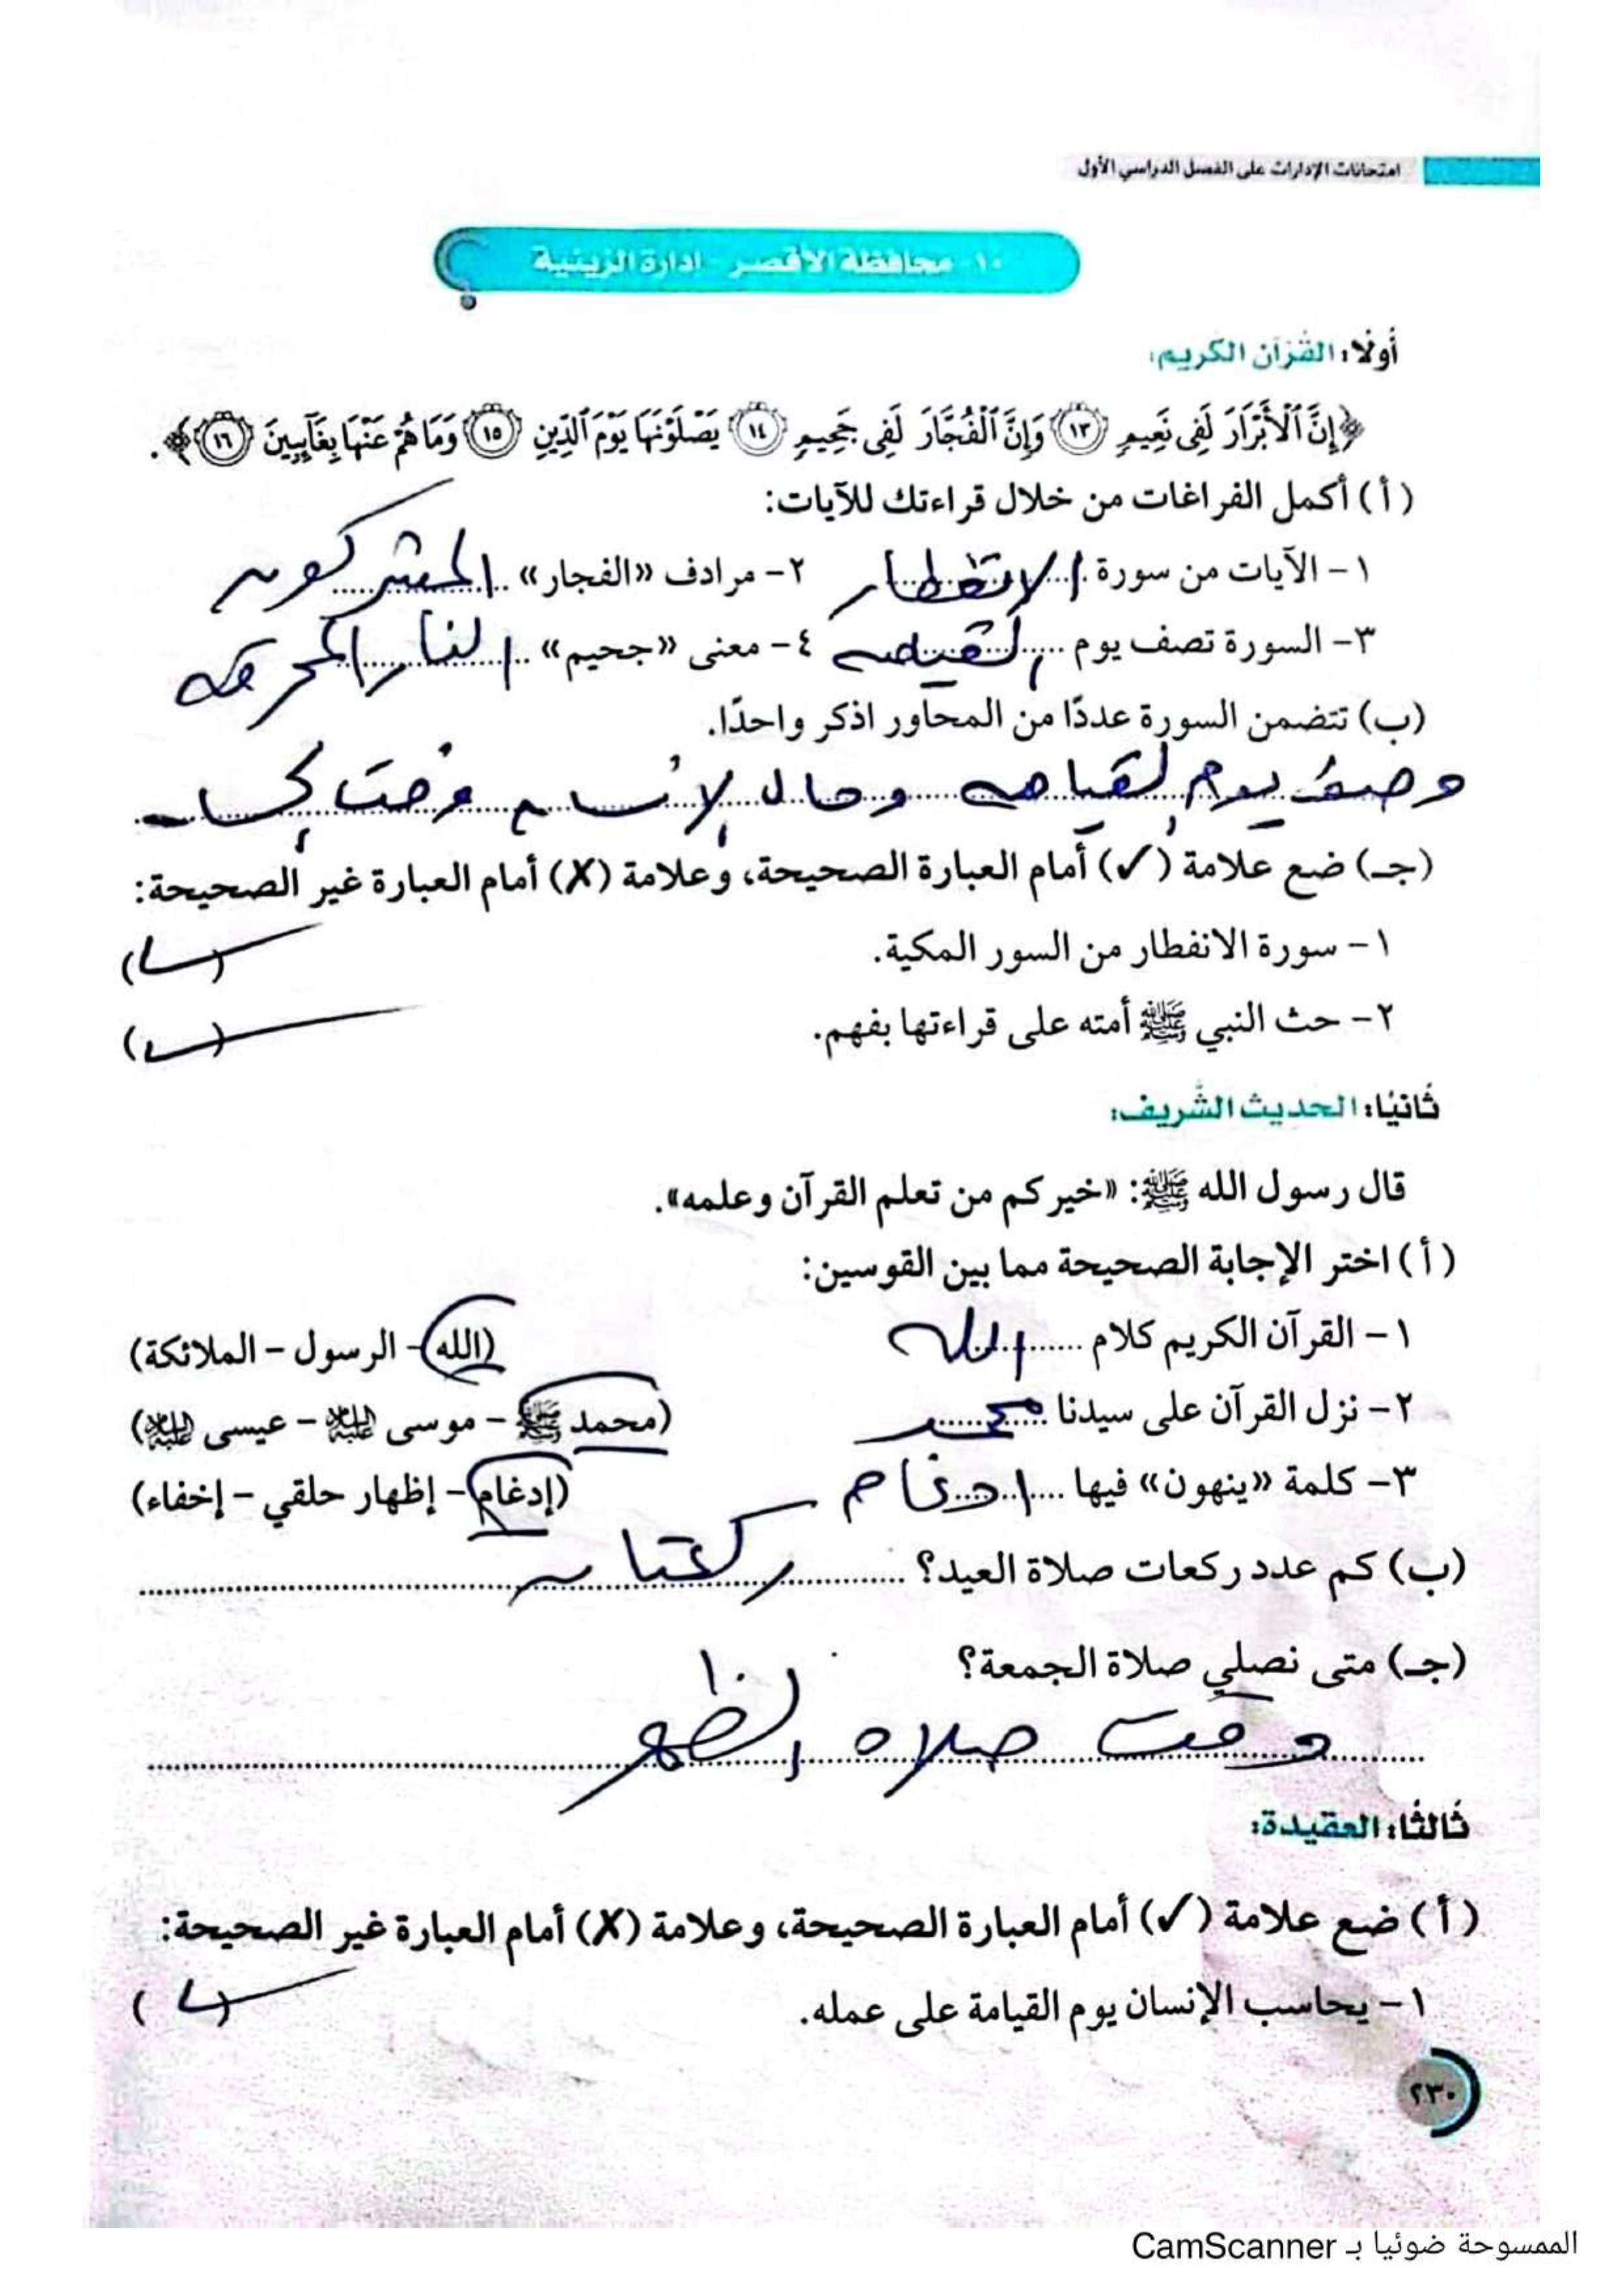 امتحانات الإدارات على الفصل الدراسي الأول
١٠- محافظة الأقصر - إدارة الزينية
أولًا: القرآن الكريم:
﴿إِنَّ ٱلْأَبْرَارَ لَفِى نَعِيمٍ ١٣ وَإِنَّ ٱلْفُجَّارَ لَفِى جَحِيمٍ ١٤ يَصْلَوْنَهَا يَوْمَ ٱلدِّينِ ١٥ وَمَا هُمْ عَنْهَا بِغَآئِبِينَ ١٦﴾.
(أ) أكمل الفراغات من خلال قراءتك للآيات:
١- الآيات من سورة الانفطار ٢- مرادف «الفجار» المشركون
٣- السورة تصف يوم القيامه ٤- معنى «جحيم» النار المحرقه
(ب) تتضمن السورة عددًا من المحاور اذكر واحدًا.
وصف يوم القيامه وحال الإنسان وقت الحساب
(جـ) ضع علامة (✓) أمام العبارة الصحيحة، وعلامة (✗) أمام العبارة غير الصحيحة:
١- سورة الانفطار من السور المكية. (✓)
٢- حث النبي ﷺ أمته على قراءتها بفهم. (✓)
ثانيًا: الحديث الشريف:
قال رسول الله ﷺ: «خيركم من تعلم القرآن وعلمه».
(أ) اختر الإجابة الصحيحة مما بين القوسين:
١- القرآن الكريم كلام الله (الله - الرسول - الملائكة)
٢- نزل القرآن على سيدنا محمد (محمد ﷺ - موسى عليه السلام - عيسى عليه السلام)
٣- كلمة «ينهون» فيها ادغام (إدغام - إظهار حلقي - إخفاء)
(ب) كم عدد ركعات صلاة العيد؟ ركعتان
(جـ) متى نصلي صلاة الجمعة؟
وقت صلاه الظهر
ثالثًا: العقيدة:
(أ) ضع علامة (✓) أمام العبارة الصحيحة، وعلامة (✗) أمام العبارة غير الصحيحة:
١- يحاسب الإنسان يوم القيامة على عمله. (✓)
٢٣٠
الممسوحة ضوئيا بـ CamScanner